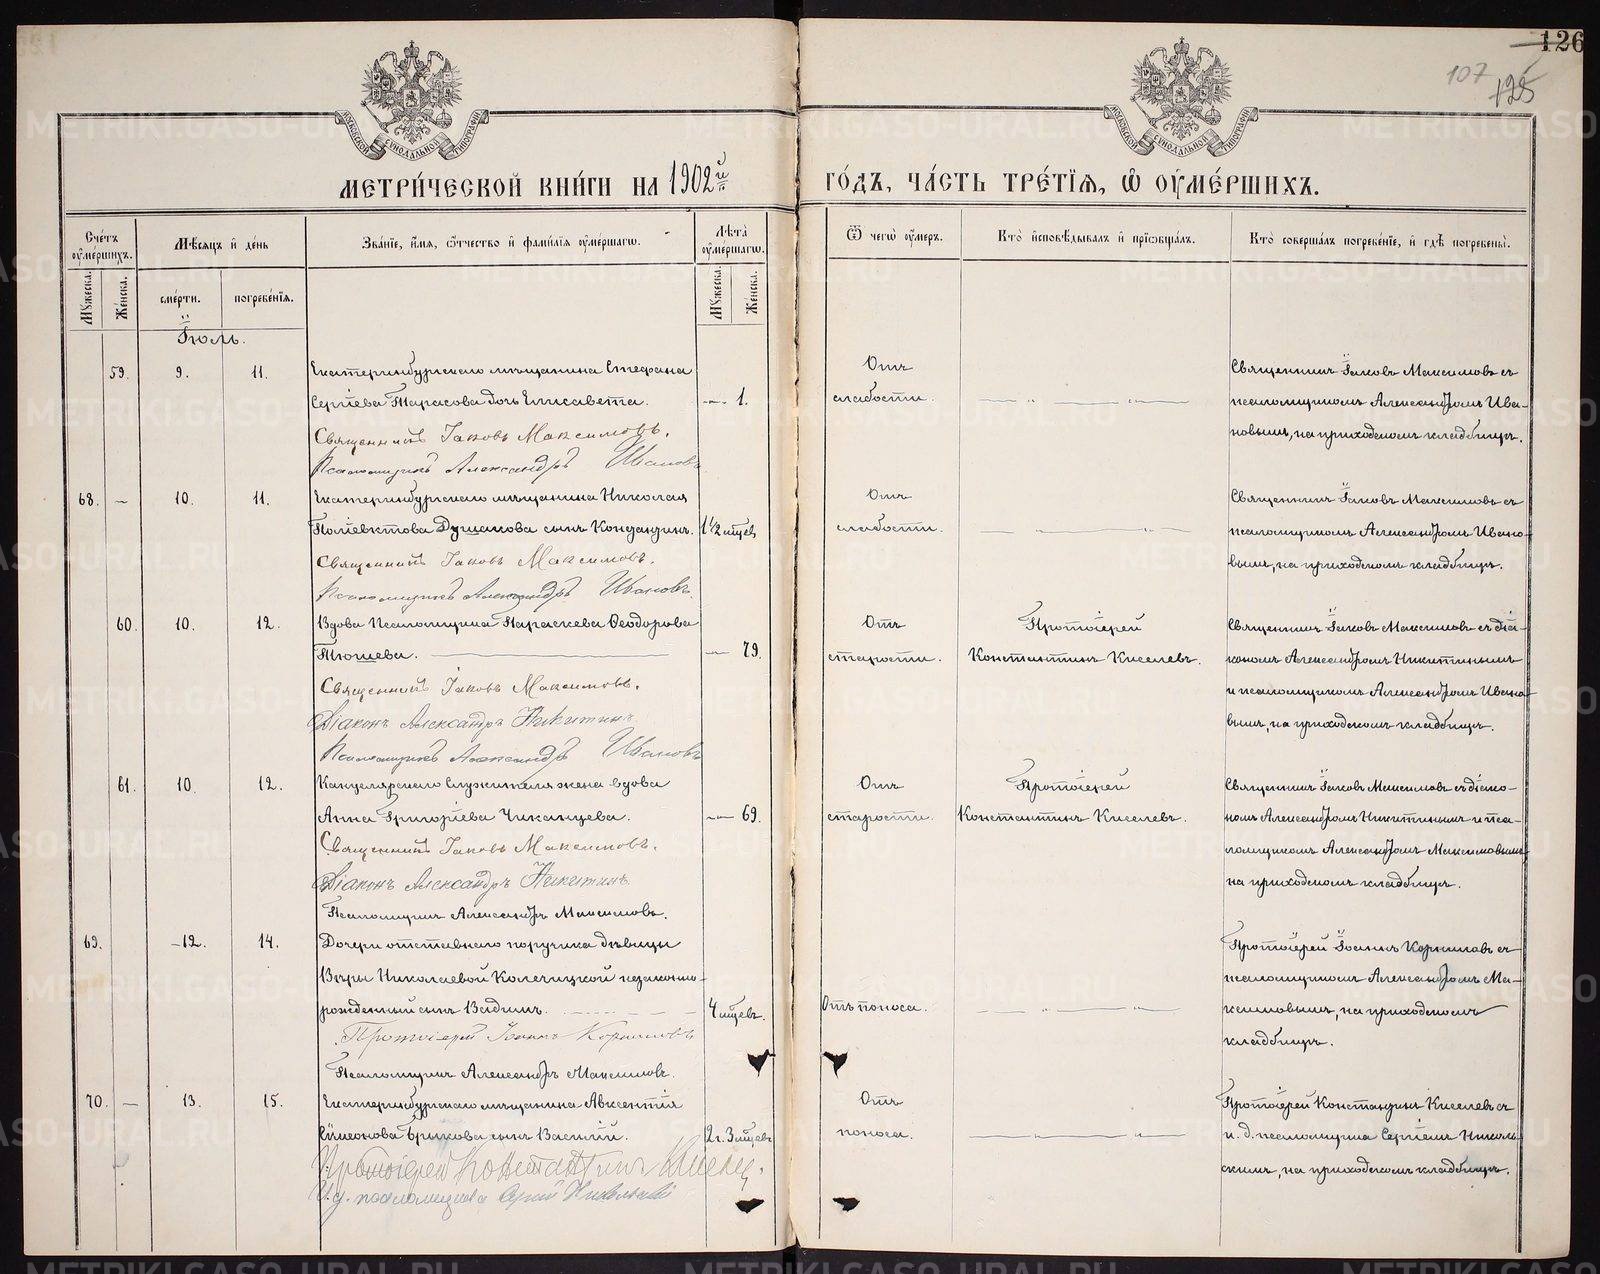 126
107
125
МОСКОВСКОЙ СѴНОДАЛЬНОЙ ТИПОГРАФІИ
МОСКОВСКОЙ СѴНОДАЛЬНОЙ ТИПОГРАФІИ
МЕТРИ́ЧЕСКОЙ КНИ́ГИ НА 1902й
ГО́ДЪ, ЧА́СТЬ ТРЕ́ТІѦ, Ѡ̓ ОУ҆МЕ́РШИХЪ.
Сче́тъ оу҆ме́ршихъ.
Мѣ́сѧцъ и҆ де́нь
Зва́ніе, и҆́мѧ, ѻ҆́тчество и҆ фами́лїѧ оу҆ме́ршагѡ.
Лѣ́та оу҆ме́ршагѡ.
Ѿ чегѡ̀ оу҆́меръ.
Кто̀ и҆сповѣ́дывалъ и҆ прїѡбща́лъ.
Кто̀ соверша́лъ погребе́нїе, и҆ гдѣ̀ погребены̀.
Мꙋ́жеска.
Же́нска.
сме́рти.
погребе́нїѧ.
Мꙋ́жеска.
Же́нска.
Іюль.
59. 9. 11. Екатеринбургскаго мѣщанина Стефана
Сергіева Тарасова дочь Елисавета. 1.
Священникъ Іаковъ Максимовъ.
Псаломщикъ Александръ Ивановъ
Отъ
слабости.
Священникъ Іаковъ Максимовъ съ
псаломщикомъ Александромъ Ива-
новымъ, на приходскомъ кладбищѣ.
68. — 10. 11. Екатеринбургскаго мѣщанина Николая
Поліевктова Душакова сынъ Кондандинъ. 1½ мѣсяц.
Священникъ Іаковъ Максимовъ.
Псаломщикъ Александръ Ивановъ.
Отъ
слабости.
Священникъ Іаковъ Максимовъ съ
псаломщикомъ Александромъ Ивано-
вымъ, на приходскомъ кладбищѣ.
60. 10. 12. Вдова Псаломщика Параскева Ѳеодорова
Тюшева. 79.
Священникъ Іаковъ Максимовъ.
Діаконъ Александръ Никитинъ
Псаломщикъ Александръ Ивановъ
Отъ
старости.
Протоіерей
Константинъ Киселевъ.
Священникъ Іаковъ Максимовъ съ діа-
кономъ Александромъ Никитинымъ
и псаломщикомъ Александромъ Ивано-
вымъ, на приходскомъ кладбищѣ.
61. 10. 12. Канцелярскаго Служителя жена вдова
Анна Григоріева Чиканцева. 69.
Священникъ Іаковъ Максимовъ.
Діаконъ Александръ Никитинъ.
Псаломщикъ Александръ Максимовъ.
Отъ
старости.
Протоіерей
Константинъ Киселевъ.
Священникъ Іаковъ Максимовъ съ діако-
номъ Александромъ Никитинымъ и пса-
ломщикомъ Александромъ Максимовымъ,
на приходскомъ кладбищѣ.
69. 12. 14. Дочери отставнаго поручика дѣвицы
Вѣры Николаевой Колечицкой незаконно-
рожденный сынъ Вадимъ. 4 мѣсяц.
Протоіерей Іоаннъ Корниловъ
Псаломщикъ Александръ Максимовъ.
Отъ поноса.
Протоіерей Іоаннъ Корниловъ съ
псаломщикомъ Александромъ Ма-
ксимовымъ, на приходскомъ
кладбищѣ.
70. — 13. 15. Екатеринбургскаго мѣщанина Авксентія
Симеонова Брыкова сынъ Василій. 2 г. 3 мѣсяц.
Протоіерей Константинъ Киселевъ.
И. д. псаломщика Сергій Никольскій
Отъ
поноса.
Протоіерей Константинъ Киселевъ съ
и. д. псаломщика Сергіемъ Николь-
скимъ, на приходскомъ кладбищѣ.
METRIKI.GASO-URAL.RU